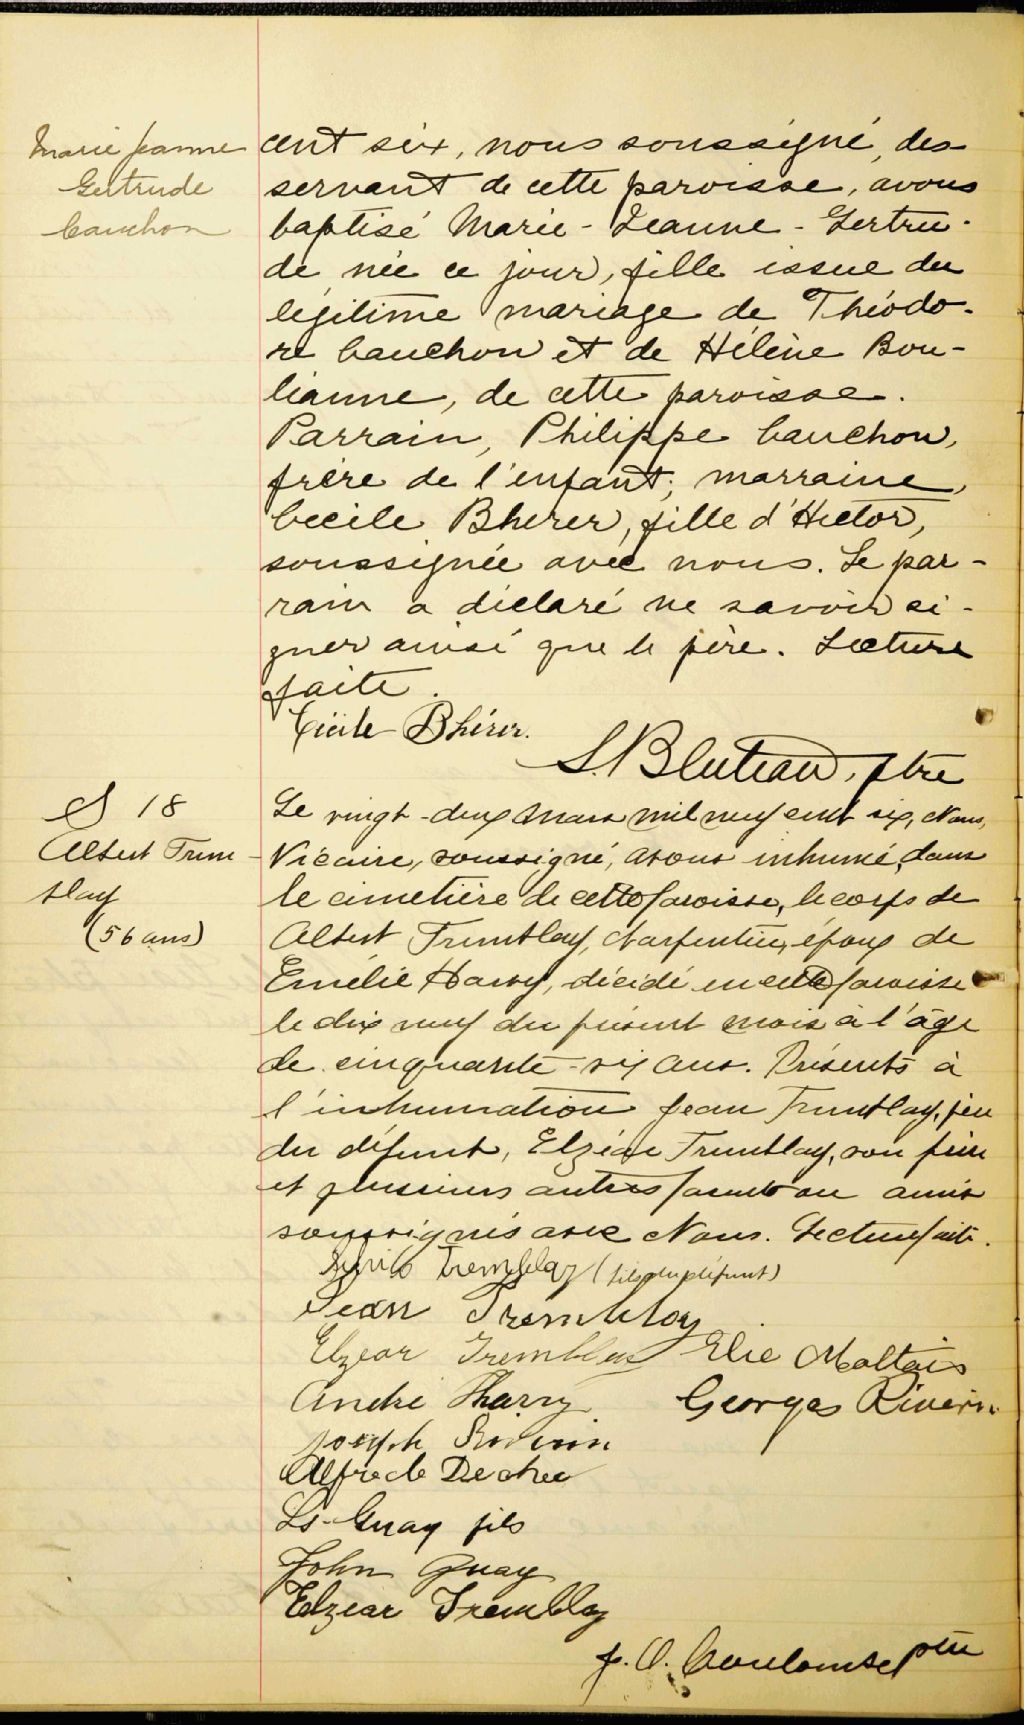 Marie Jeanne
Gertrude
Cauchon
cent six, nous soussigné, des-
servant de cette paroisse, avons
baptisé Marie-Jeanne-Gertru-
de née ce jour, fille issue du
légitime mariage de Théodo-
re Cauchon et de Hélène Bou-
lianne, de cette paroisse.
Parrain, Philippe Cauchon,
frère de l'enfant; marraine,
Cécile Bherer, fille d'Hector,
soussignée avec nous. Le par-
rain a déclaré ne savoir si-
gner ainsi que le père. Lecture
faite.
Cécile Bhérer.
S. Bluteau, ptre
S 18
Albert Trem
blay
(56 ans)
Le vingt-deux Mars mil neuf cent six, Nous,
Vicaire, soussigné, avons inhumé, dans
le cimetière de cette paroisse, le corps de
Albert Tremblay, charpentier, époux de
Emélie Harvey, décédé en cette paroisse
le dix neuf du présent mois à l'âge
de cinquante-six ans. Présents à
l'inhumation Jean Tremblay,
du défunt, Elzéar Tremblay, son frère
et plusieurs autres parents ou amis
soussignés avec Nous. Lecture faite.
Tremblay (fils du défunt)
Jean Tremblay
Elzear Tremblay Elie Maltais
André Harvy Georges Riverin
Joseph
Alfred Dechee
Ls-Guay fils
John Guay
Elzear Tremblay
J. O. Coulombe ptre